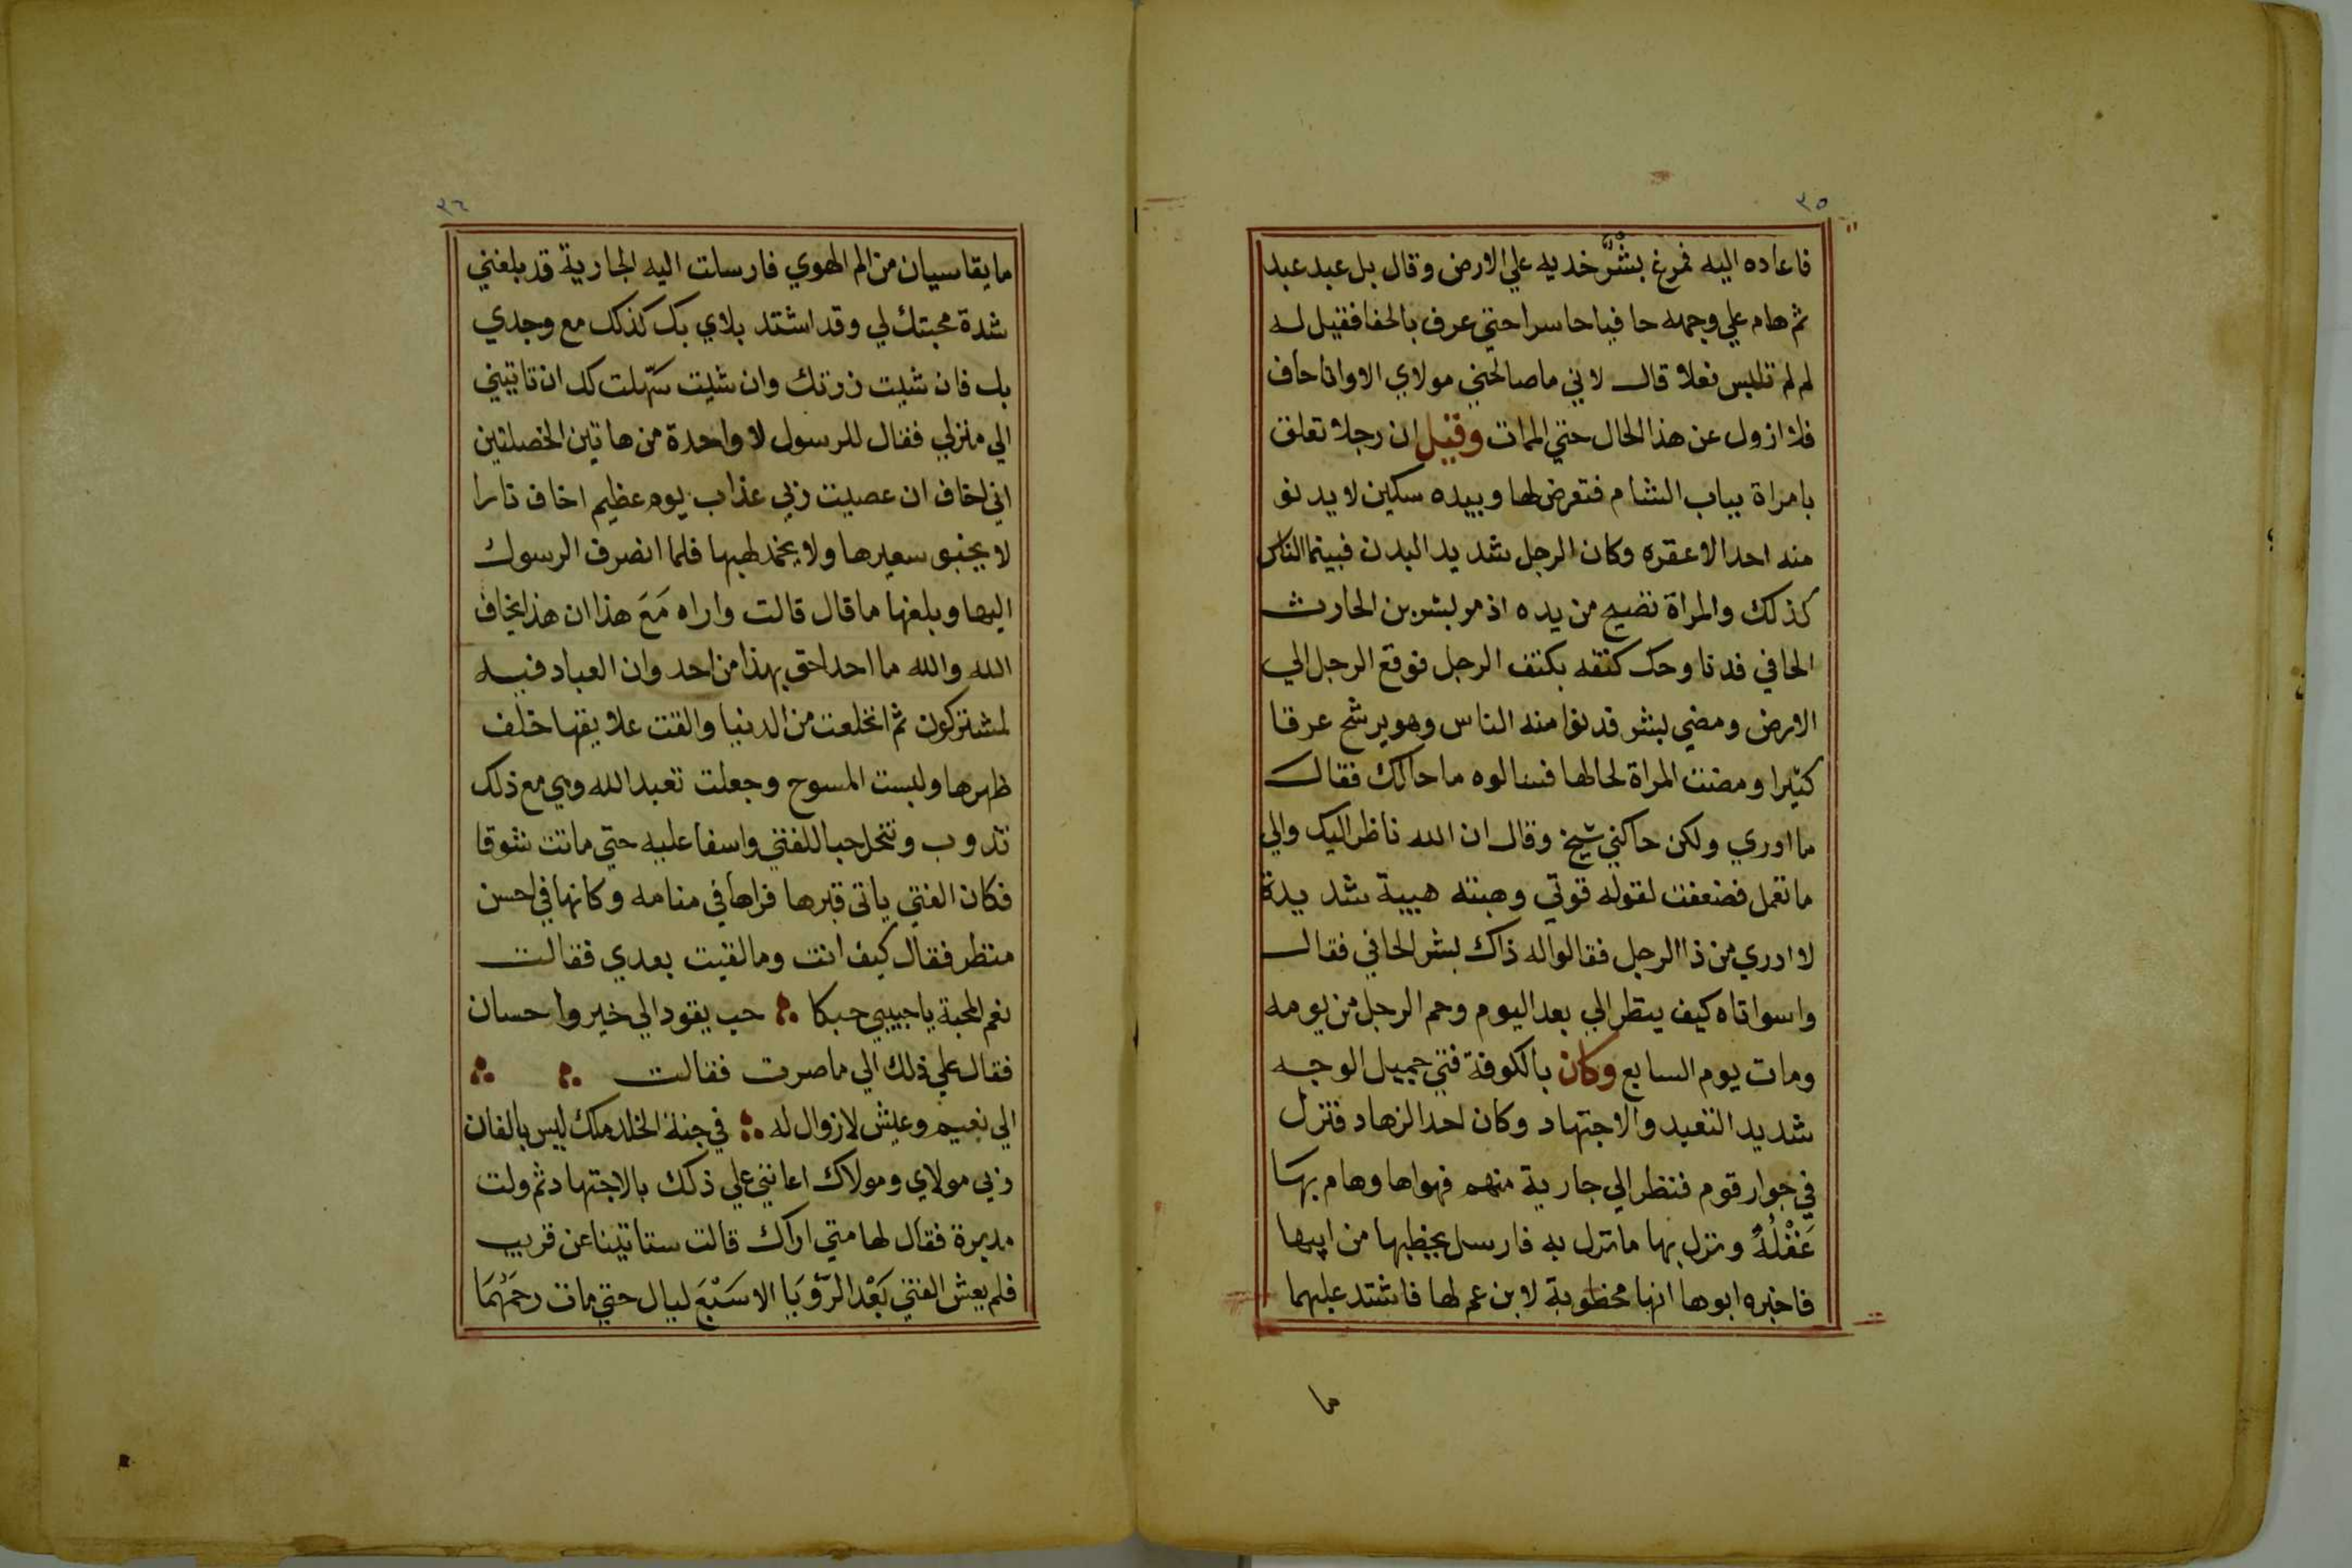 ٣٥
فاعاده اليه فمرغ بشر خديه علي الارض وقال بل عبد عبد
ثم هام علي وجهه حافيا حاسرا حتي عرف بالحفا فقيل له
لم لم تلبس نعلا قال لاني ماصالحني مولاي الا وانا حاف
فلا ازول عن هذا الحال حتي الممات وقيل ان رجلا تعلق
بامراة بباب الشام فتعرض لها وبيده سكين لا يدنو
منه احد الا عقره وكان الرجل شديد البدن فبينما الناس
كذلك والمراة تضيح من يده اذ مر بشر بن الحارث
الحافي فدنا وحك كتفه بكتف الرجل فوقع الرجل الي
الارض ومضي بشر فدنوا منه الناس وهو يرشح عرقا
كثيرا ومضت المراة لحالها فسالوه ما حالك فقال
ما ادري ولكن حاكني شيخ وقال ان الله ناظر اليك والي
ما تعمل فضعفت لقوله قوتي وهبته هيبة شديدة
لا ادري من ذا الرجل فقالوا له ذاك بشر الحافي فقال
واسواتاه كيف ينظر الي بعد اليوم وحم الرجل من يومه
ومات يوم السابع وكان بالكوفة فتي جميل الوجه
شديد التعبد والاجتهاد وكان احد الزهاد فنزل
في جوار قوم فنظر الي جارية منهم فهواها وهام بها
عَقْلُهُ ونزل بها مانزل به فارسل يخطبها من ابيها
فاخبره ابوها انها مخطوبة لابن عم لها فاشتد عليهما
ما
٣٦
مايقاسيان من الم الهوي فارسلت اليه الجارية قد بلغني
شدة محبتك لي وقد اشتد بلاي بك كذلك مع وجدي
بك فان شيت زرتك وان شيت سهلت لك ان تاتيني
الي منزلي فقال للرسول لا واحدة من هاتين الخصلتين
اني اخاف ان عصيت ربي عذاب يوم عظيم اخاف نارا
لا يخبو سعيرها ولا يخمد لهبها فلما انصرف الرسول
اليها وبلغها ماقال قالت واراه مَعَ هذا ان هذا يخاف
الله والله ما احد احق بهذا من احد وان العباد فيه
لمشتركون ثم انخلعت من الدنيا والقت علايقها خلف
ظهرها ولبست المسوح وجعلت تعبد الله وهي مع ذلك
تذوب وتنحل حبا للفتي واسفا عليه حتي ماتت شوقا
فكان الفتي ياتي قبرها فراها في منامه وكانها في احسن
منظر فقال كيف انت ومالقيت بعدي فقالت
نعم المحبة ياحبيبي حبكا ؞ حب يقود الي خير واحسان
فقال علي ذلك الي ماصرت فقالت ؞ ؞
الي نعيم وعيش لا زوال له ؞ في جنة الخلد ملك ليس بالفان
ربي مولاي ومولاك اعانني علي ذلك بالاجتهاد ثم ولت
مدبرة فقال لها متي اراك قالت ستاتينا عن قريب
فلم يعش الفتي بَعْد الرؤيَا الا سَبْعَ ليال حتي مات رحمَهُمَا